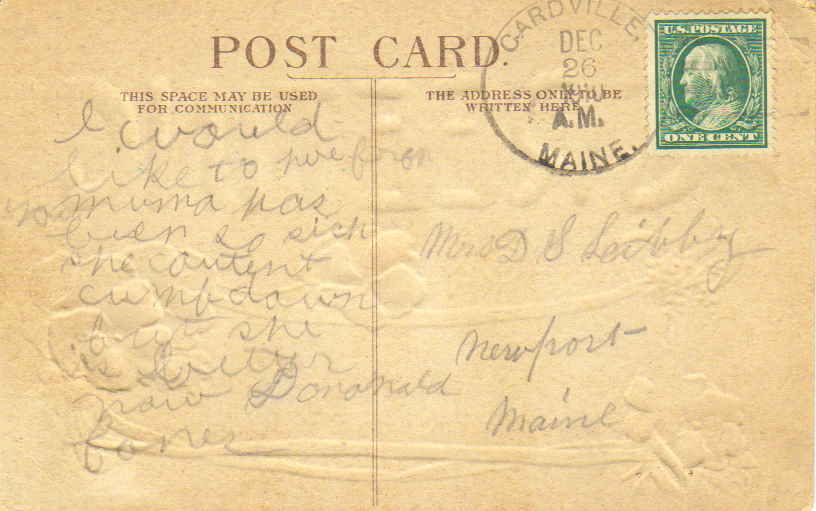 POST CARD.
THIS SPACE MAY BE USED
FOR COMMUNICATION
THE ADDRESS ONLY TO BE
WRITTEN HERE
CARDVILLE,
DEC
26
A.M.
MAINE.
U.S. POSTAGE
ONE CENT
I would
like to here from
you muma has
been so sick
she coutent
cumb down
but she
is better
now Dononald
Jones
Mrs D S Leibby
Newport
Maine